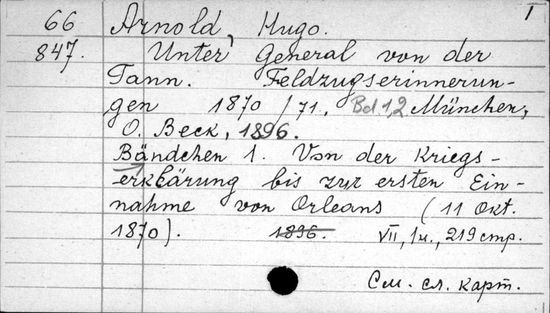 1
66 Arnold, Hugo.
847. Unter General von der
Tann. Feldzugserinnerun-
gen 1870/71. Bd 1,2 München,
O. Beck, 1896.
Bändchen 1. Von der Kriegs-
erklärung bis zur ersten Ein-
nahme von Orleans (11 Okt.
1870). 1896. VII, 219 стр.
См. сл. карт.